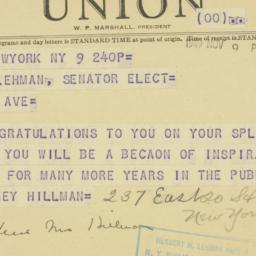 UNION
(00)
W. P. MARSHALL, PRESIDENT
grams and day letters is STANDARD TIME at point of origin. Time of receipt is STAN
1949 NOV 9 P
WYORK NY 9 240P=
LEHMAN, SENATOR ELECT=
AVE=
GRATULATIONS TO YOU ON YOUR SPL
YOU WILL BE A BECAON OF INSPIRA
FOR MANY MORE YEARS IN THE PUB
NEY HILLMAN= 237 East 20 St
New Yo
Mrs Hillman
HERBERT H. LEHMAN
N. Y.